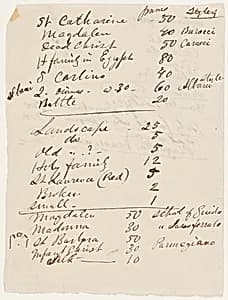 pauns Styles
St Catharine - 50
Magdalen 40 Barocci
Dead Christ 50 Caracci
H family in Egypt 80
S Carlino 40
2 - w 30 - 60 Albani
Bottle 20
Landscape - 25
do 5
Old - ? - 5
Holy family 12
St Lawrence (Red) 5
Broken 2
Small - 1
Magdalen 50 School of Guido
Madonna 30 " Sassoferrato
St Barbara 50 Parmegiano
Infant Christ 30
10